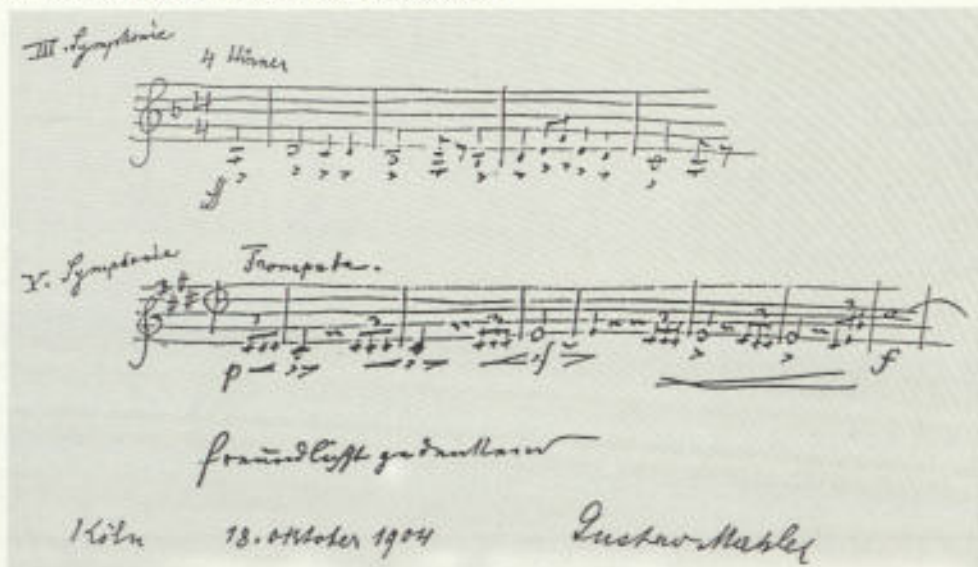 III. Symphonie
4 Hörner
ff
V. Symphonie Trompete.
p f f
freundlichst gedenkend
Köln 18. Oktober 1904 Gustav Mahler